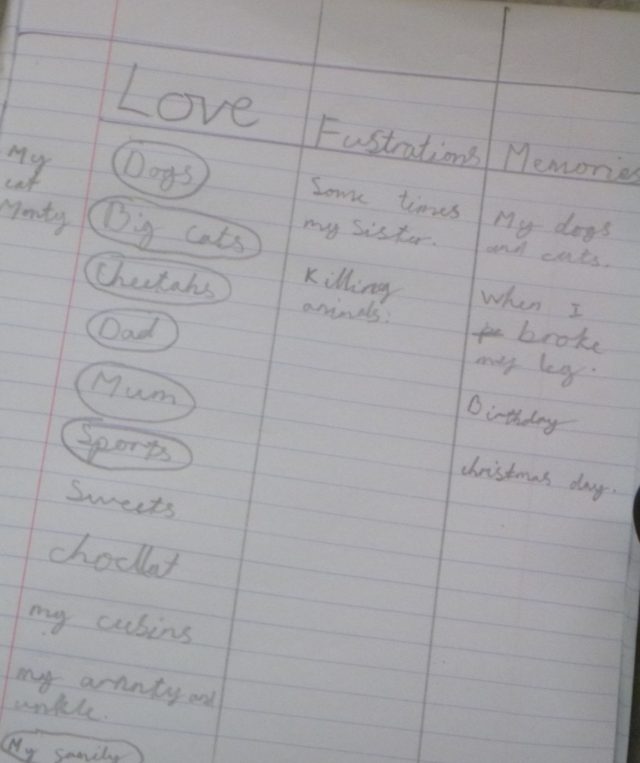 Love
Dogs
Big cats
Cheetahs
Dad
Mum
Sports
Sweets
chocllat
my cusins
my arnnty and
unkle.
My family
My
cat
Monty
Fustrations
Some times
my sister.
Killing
animals.
Memories
My dogs
and cats.
When I
broke
my leg.
Birthday
christmas day.